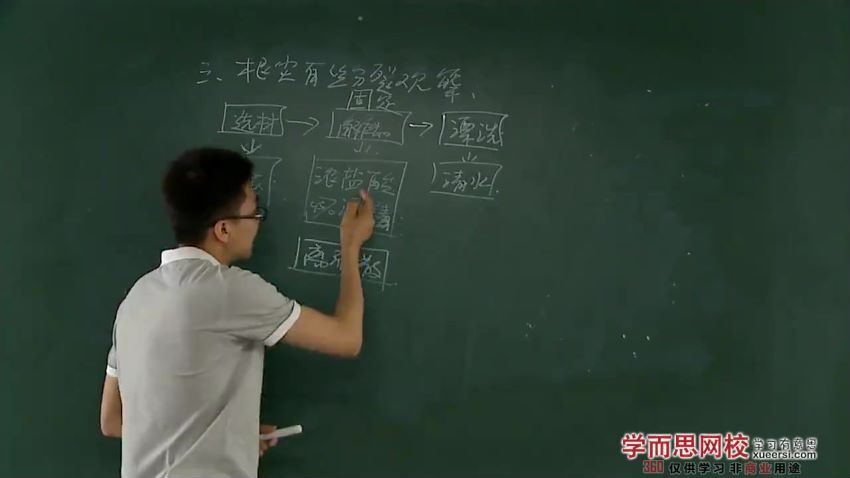 三、根尖有丝分裂观察、
固定
选材 → 解离 → 漂洗
浓盐酸 清水
离
学而思网校 学习有意思
xueersi.com
360 仅供学习 非商业用途